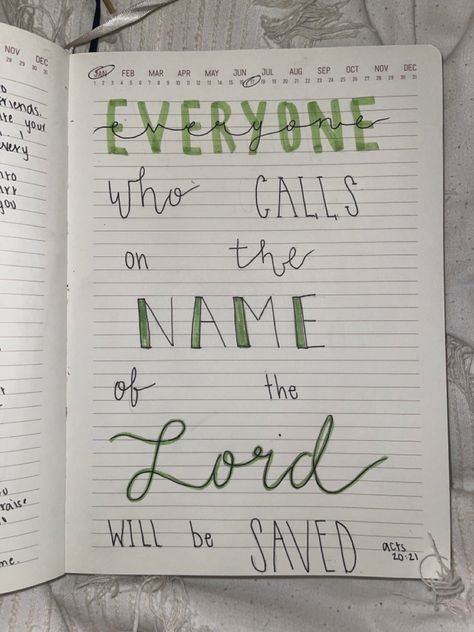 NOV DEC
friends.
your
every
you
JAN FEB MAR APR MAY JUN JUL AUG SEP OCT NOV DEC
1 2 3 4 5 6 7 8 9 10 11 12 13 14 15 16 17 18 19 20 21 22 23 24 25 26 27 28 29 30 31
EVERYONE
everyone
who CALLS
on the
NAME
of the
Lord
WILL be SAVED
acts
20:21